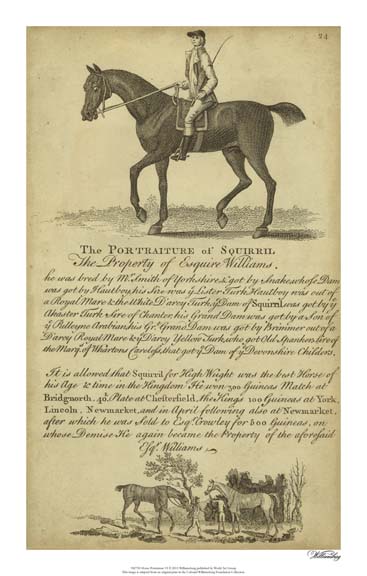 24
The PORTRAITURE of SQUIRRIL
The Property of Esquire Williams,
he was bred by Mr. Smith of Yorkshire & got by Snake whose Dam
was got by Hautboy, his Sire was ye Lister Turk, Hautboy was out of
a Royal Mare & the White Darcy Turk, ye Dam of Squirril was got by ye
Ahaster Turk Sire of Chanter, his Grand Dam was got by a Son of
ye Pulleyne Arabian, his Gr. Grand Dam was got by Brimmer out of a
Darcy Royal Mare & ye Darcy Yellow Turk, who got Old Spanker, Sire of
the Marqs. of Whartons Careless, that got ye Dam of ye Devonshire Childers.
It is allowed that Squirril for High Weight was the best Horse of
his Age & time in the Kingdom He won 300 Guineas Match at
Bridgnorth, 40£ Plate at Chesterfield, the Kings 100 Guineas at York,
Lincoln, Newmarket, and in April following also at Newmarket,
after which he was sold to Esqr. Crowley for 500 Guineas, on
whose Demise He again became the Property of the aforesaid
Esqr. Williams
Williamsburg